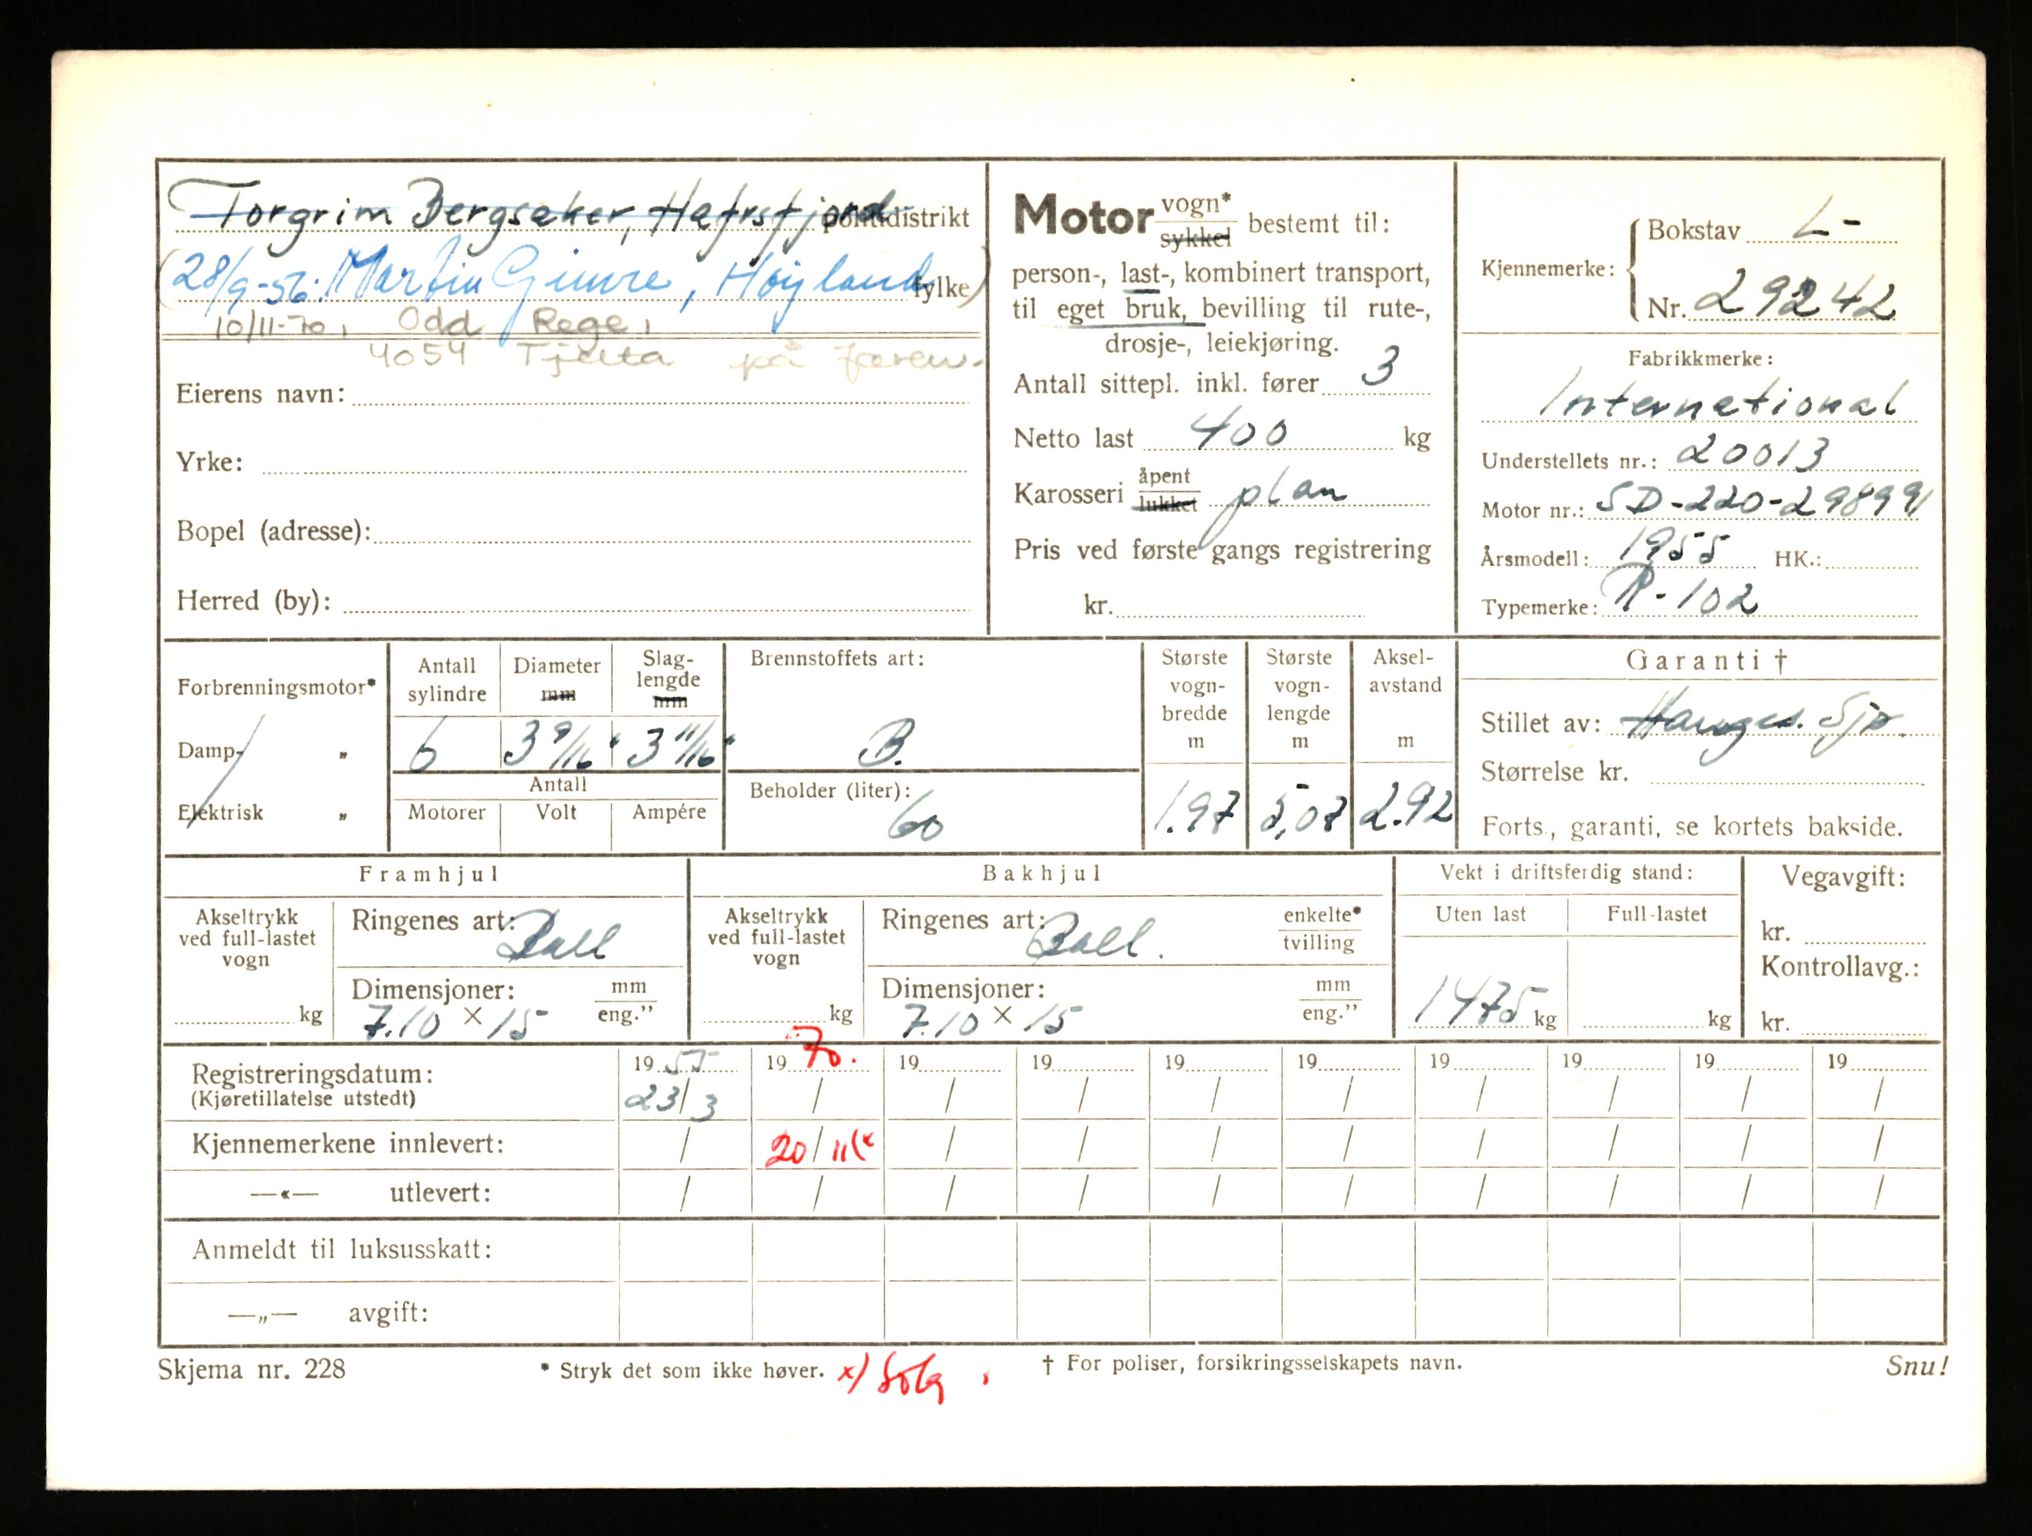 Torgrim Bergsaker, Hafrsfjord politidistrikt
(28/9-56: Martin Gimre, Høyland fylke)
10/11-70, Odd Rege,
4054 Tjelta på Jæren.
Eierens navn:
Yrke:
Bopel (adresse):
Herred (by):
Motor vogn* sykkel bestemt til:
person-, last-, kombinert transport,
til eget bruk, bevilling til rute-,
drosje-, leiekjøring.
Antall sittepl. inkl. fører 3
Netto last 400 kg
Karosseri åpent lukket plan
Pris ved første gangs registrering
kr.
Kjennemerke: Bokstav L-
Nr. 29242
Fabrikkmerke:
International
Understellets nr.: 20013
Motor nr.: SD-220-298991
Årsmodell: 1955 HK.:
Typemerke: R-102
Forbrenningsmotor*
Damp- „
Elektrisk „
Antall sylindre 6
Diameter mm 3 9/16"
Slag-lengde mm 3 11/16"
Antall
Motorer Volt Ampére
Brennstoffets art:
B.
Beholder (liter):
60
Største vogn-bredde m 1.97
Største vogn-lengde m 5,07
Aksel-avstand m 2.92
Garanti †
Stillet av: Sjø.
Størrelse kr.
Forts., garanti, se kortets bakside.
Framhjul
Akseltrykk ved full-lastet vogn
kg
Ringenes art: Ball
Dimensjoner: mm eng."
7.10 × 15
Bakhjul
Akseltrykk ved full-lastet vogn
kg
Ringenes art: Ball. enkelte* tvilling
Dimensjoner: mm eng."
7.10 × 15
Vekt i driftsferdig stand:
Uten last Full-lastet
1475 kg kg
Vegavgift:
kr.
Kontrollavg.:
kr.
Registreringsdatum: 19 55 19 70. 19 19 19 19 19 19 19 19
(Kjøretillatelse utstedt) 23/3 / / / / / / / / /
Kjennemerkene innlevert: / 20/11(x / / / / / / / /
—«— utlevert: / / / / / / / / / /
Anmeldt til luksusskatt:
—„— avgift:
Skjema nr. 228 * Stryk det som ikke høver. x) Solg. † For poliser, forsikringsselskapets navn. Snu!